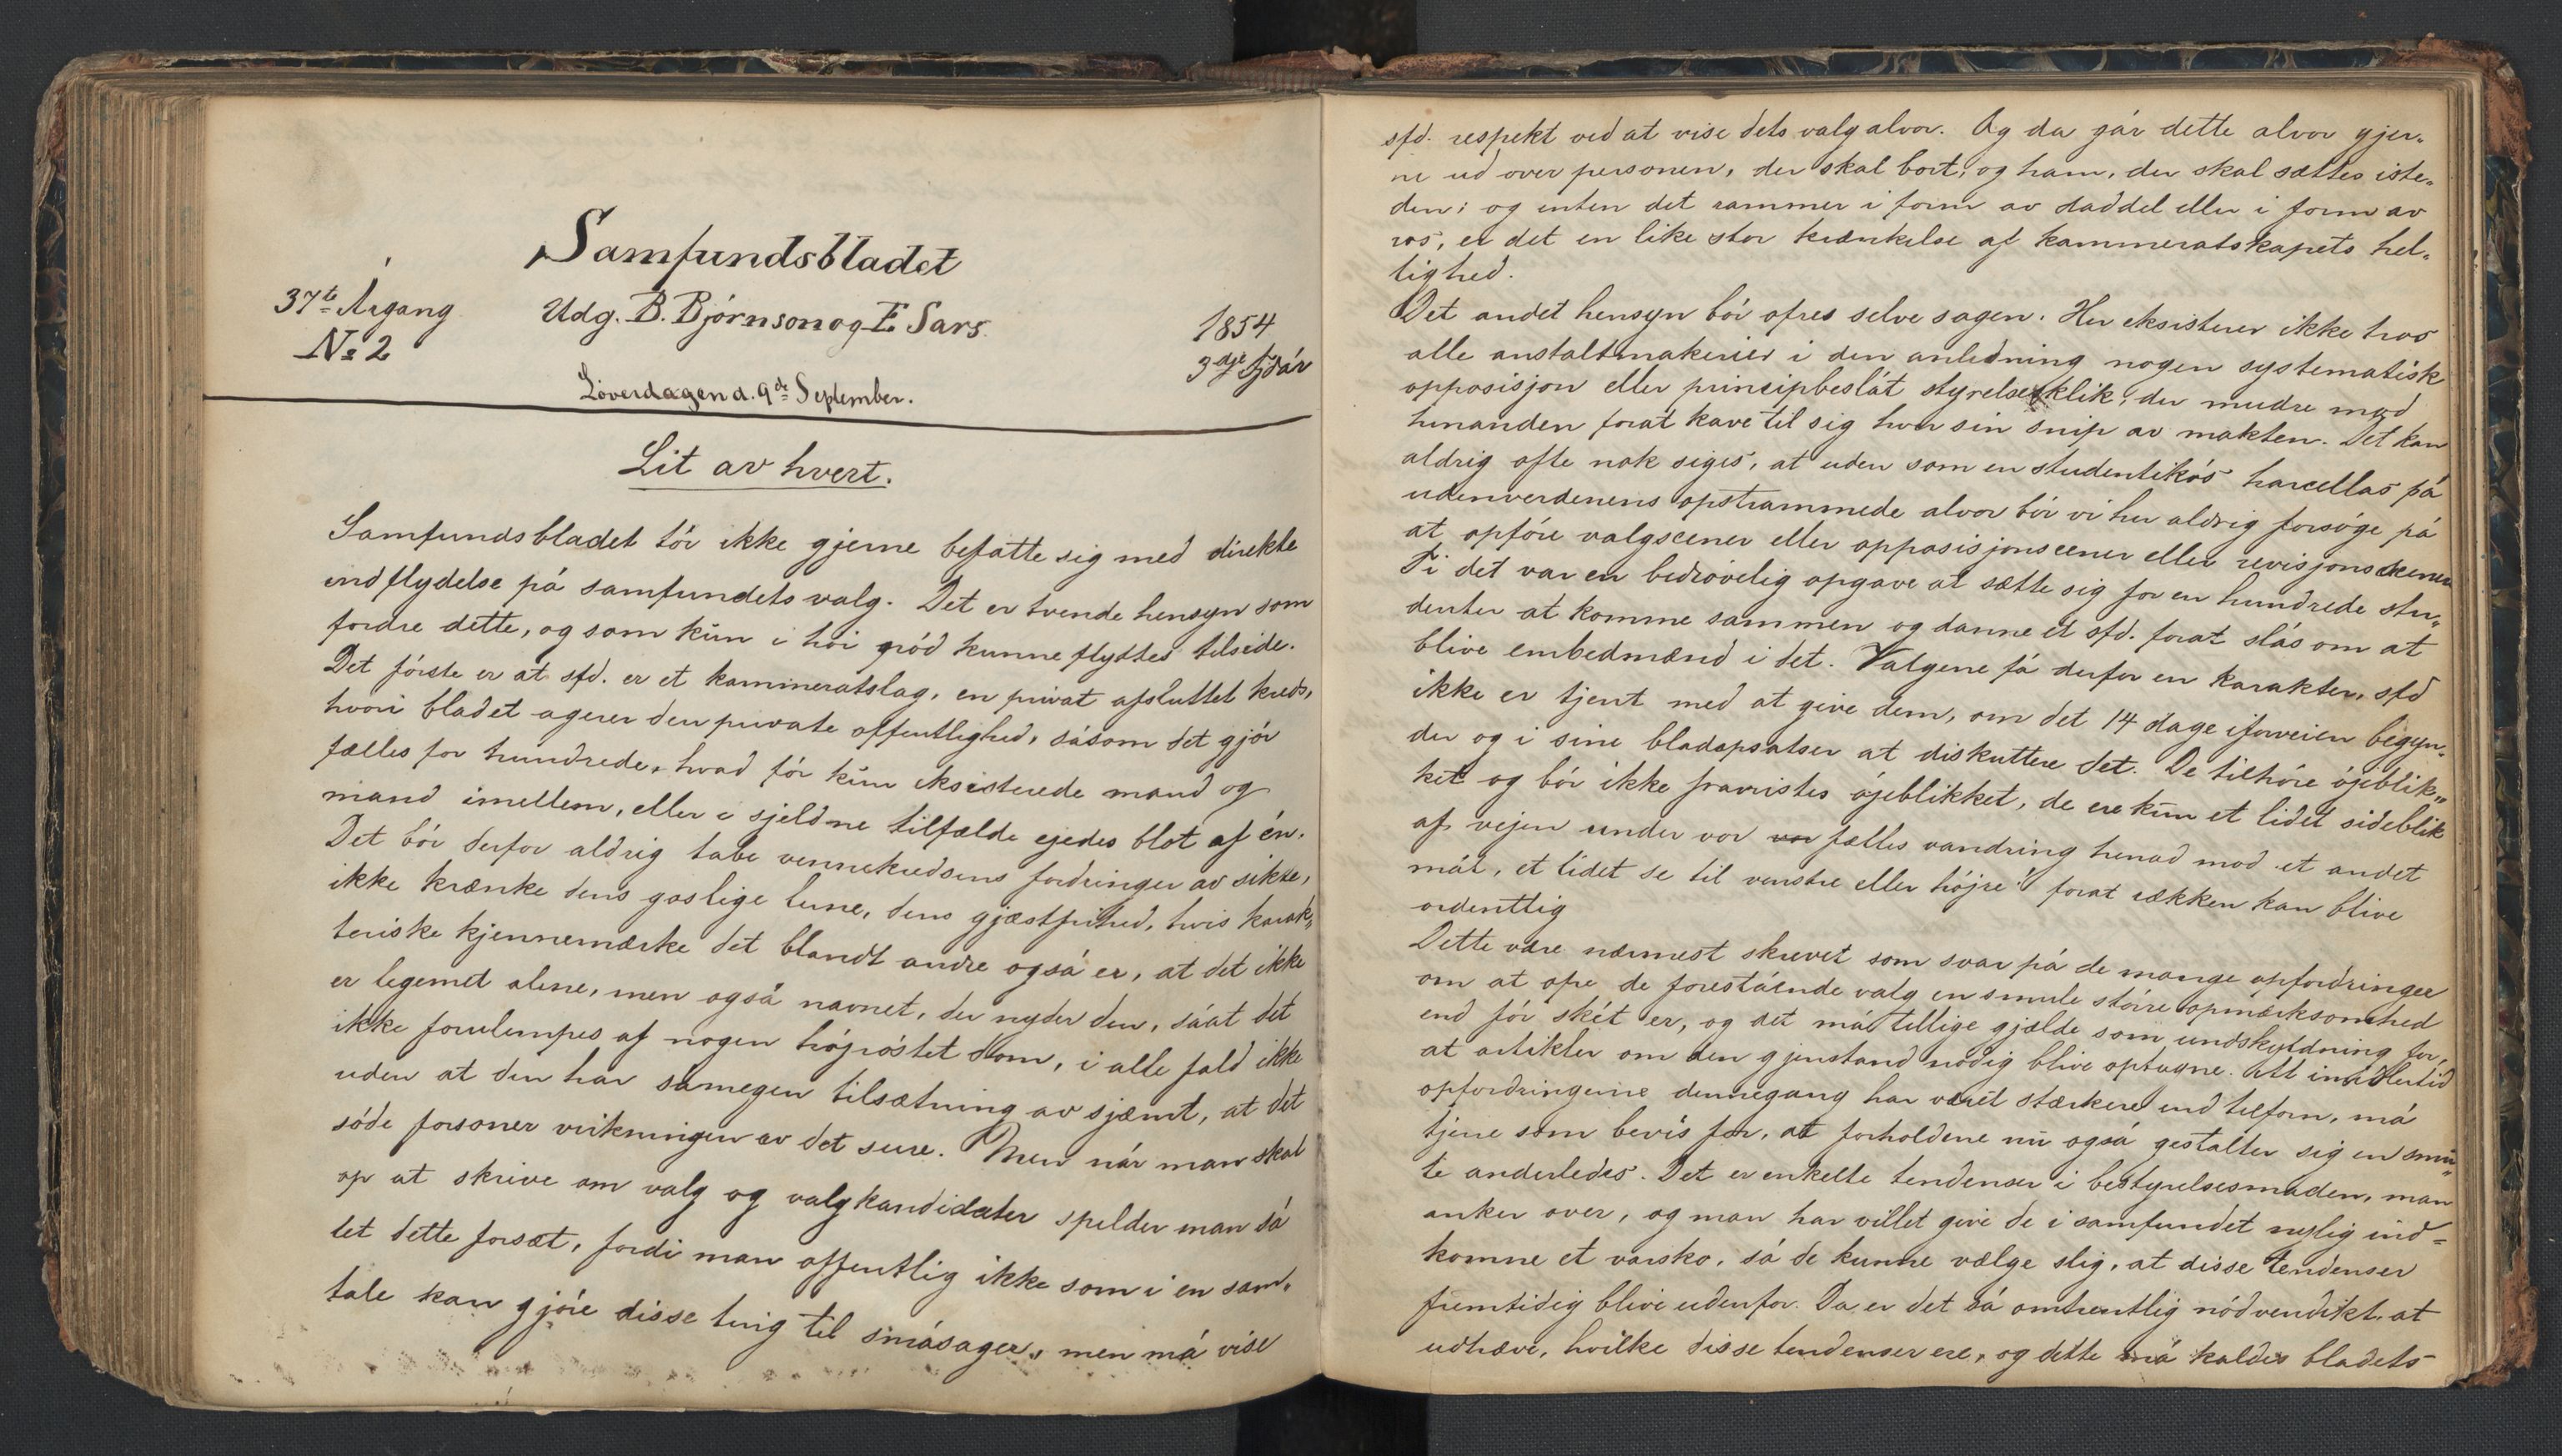 Samfundsbladet
37te Årgang
Udg. B. Bjørnson og E. Sars.
1854
No 2
3dje Fjdár
Loverdagen d. 9de September.
Lit av hvert.
Samfundsbladet tór ikke gjerne befatte sig med direkte
indflydelse på samfundets valg. Det er tvende hensyn som
fordre dette, og som kun i hói gród kunne flyttes tilside.
Det fórste er at sfd. er et kammeratslag, en privat afsluttet kreds,
hvori bladet agerer den private offentlighed, såsom det gjór
fælles for hundrede, hvad fór kun eksisterede mand og
mand imellem, eller i sjeldne tilfælde ejedes blot af én.
Det bór derfor aldrig tabe vennekredsens fordringer av sikte,
ikke krænke dens goslige lune, dens gjæstfrihed, hvis karak„
teriske kjennemærke det blandt andre også er, at det ikke
er legemet alene, men også navnet, der nyder den, såat det
ikke forulempes af nogen hójróstet dom, i alle fald ikke
uden at den har såmegen tilsætning av sjæmt, at det
sóde forsoner virkningen av det sure. Men når man skal
op at skrive om valg og valgkandidater spilder man så
let dette forsæt, fordi man offentlig ikke som i en sam„
tale kan gjóre disse ting til småsager, men må vise
sfd. respekt ved at vise dets valg alvor. Og da går dette alvor gjer„
ne ud over personen, der skal bort, og ham, der skal sættes iste„
den; og enten det rammer i form av daddel eller i form av
ros, er det en like stor krænkelse af kammeratskapets hel„
lighed.
Det andet hensyn bór ofres selve sagen. Her eksisterer ikke tros
alle anstaltmakerier i den anledning nogen systematisk
opposisjon eller principbeslåt styrelsesklik, der mudre mod
hinanden forat kave til sig hver sin snip av makten. Det kan
aldrig ofte nok siges, at uden som en studentikós harcellas på
udenverdenens opstrammede alvor bór vi her aldrig forsóge på
at opfóre valgscener eller opposisjonscener eller revisjonscener
Ti det var en bedróvelig opgave at sætte sig for en hundrede stu„
denter at komme sammen og danne et sfd. forat slås om at
blive embedmænd i det. Valgene få derfor en karakter, sfd
ikke er tjent med at give dem, om det 14 dage iforveien begyn„
der og i sine bladopsatser at diskuttere det. De tilhóre ójeblik„
ket og bór ikke fravristes ójeblikket, de ere kun et lidet sideblik
af vejen under vor fælles vandring henad mod et andet
mål, et lidet se til venstre eller hójre! forat rækken kan blive
ordentlig
Dette være nærmest skrevet som svar på de mange opfordringer
om at ofre de forestående valg en smule stórre opmærksomhed
end fór skét er, og det må tillige gjælde som undskyldning for,
at artikler om den gjenstand nódig blive optagne. Att imidlertid
opfordringerne dennegang har været stærkere end tilforn, må
tjene som bevis for, at forholdene nu også gestalter sig en smu„
le anderledes. Det er enkelte tendenser i bestyrelsesmåden, man
anker over, og man har villet give de i samfundet nylig ind=
komne et varsko, så de kunne vælge slig, at disse tendenser
fremtidig blive udenfor. Da er det så omtrentlig nódvendikt, at
udhæve, hvilke disse tendenser ere, og dette må kaldes bladets